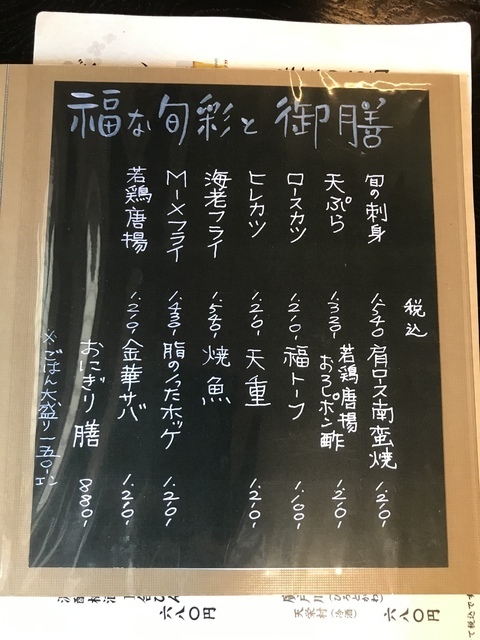 福な旬彩と御膳
税込
旬の刺身 1.540-
天ぷら 1.330-
ロースカツ 1.210-
ヒレカツ 1.210-
海老フライ 1.540-
Mーxフライ
若鶏唐揚 1.210-
肩ロース南蛮焼 1.210-
若鶏唐揚
おろしポン酢 1.210-
福トーフ 1.100-
天重 1.210-
焼魚
脂ののったホッケ 1.210-
金華サバ 1.210-
おにぎり膳 880-
※ごはん大盛り一五〇-
六八〇円
天栄村(冷酒)
六八〇円